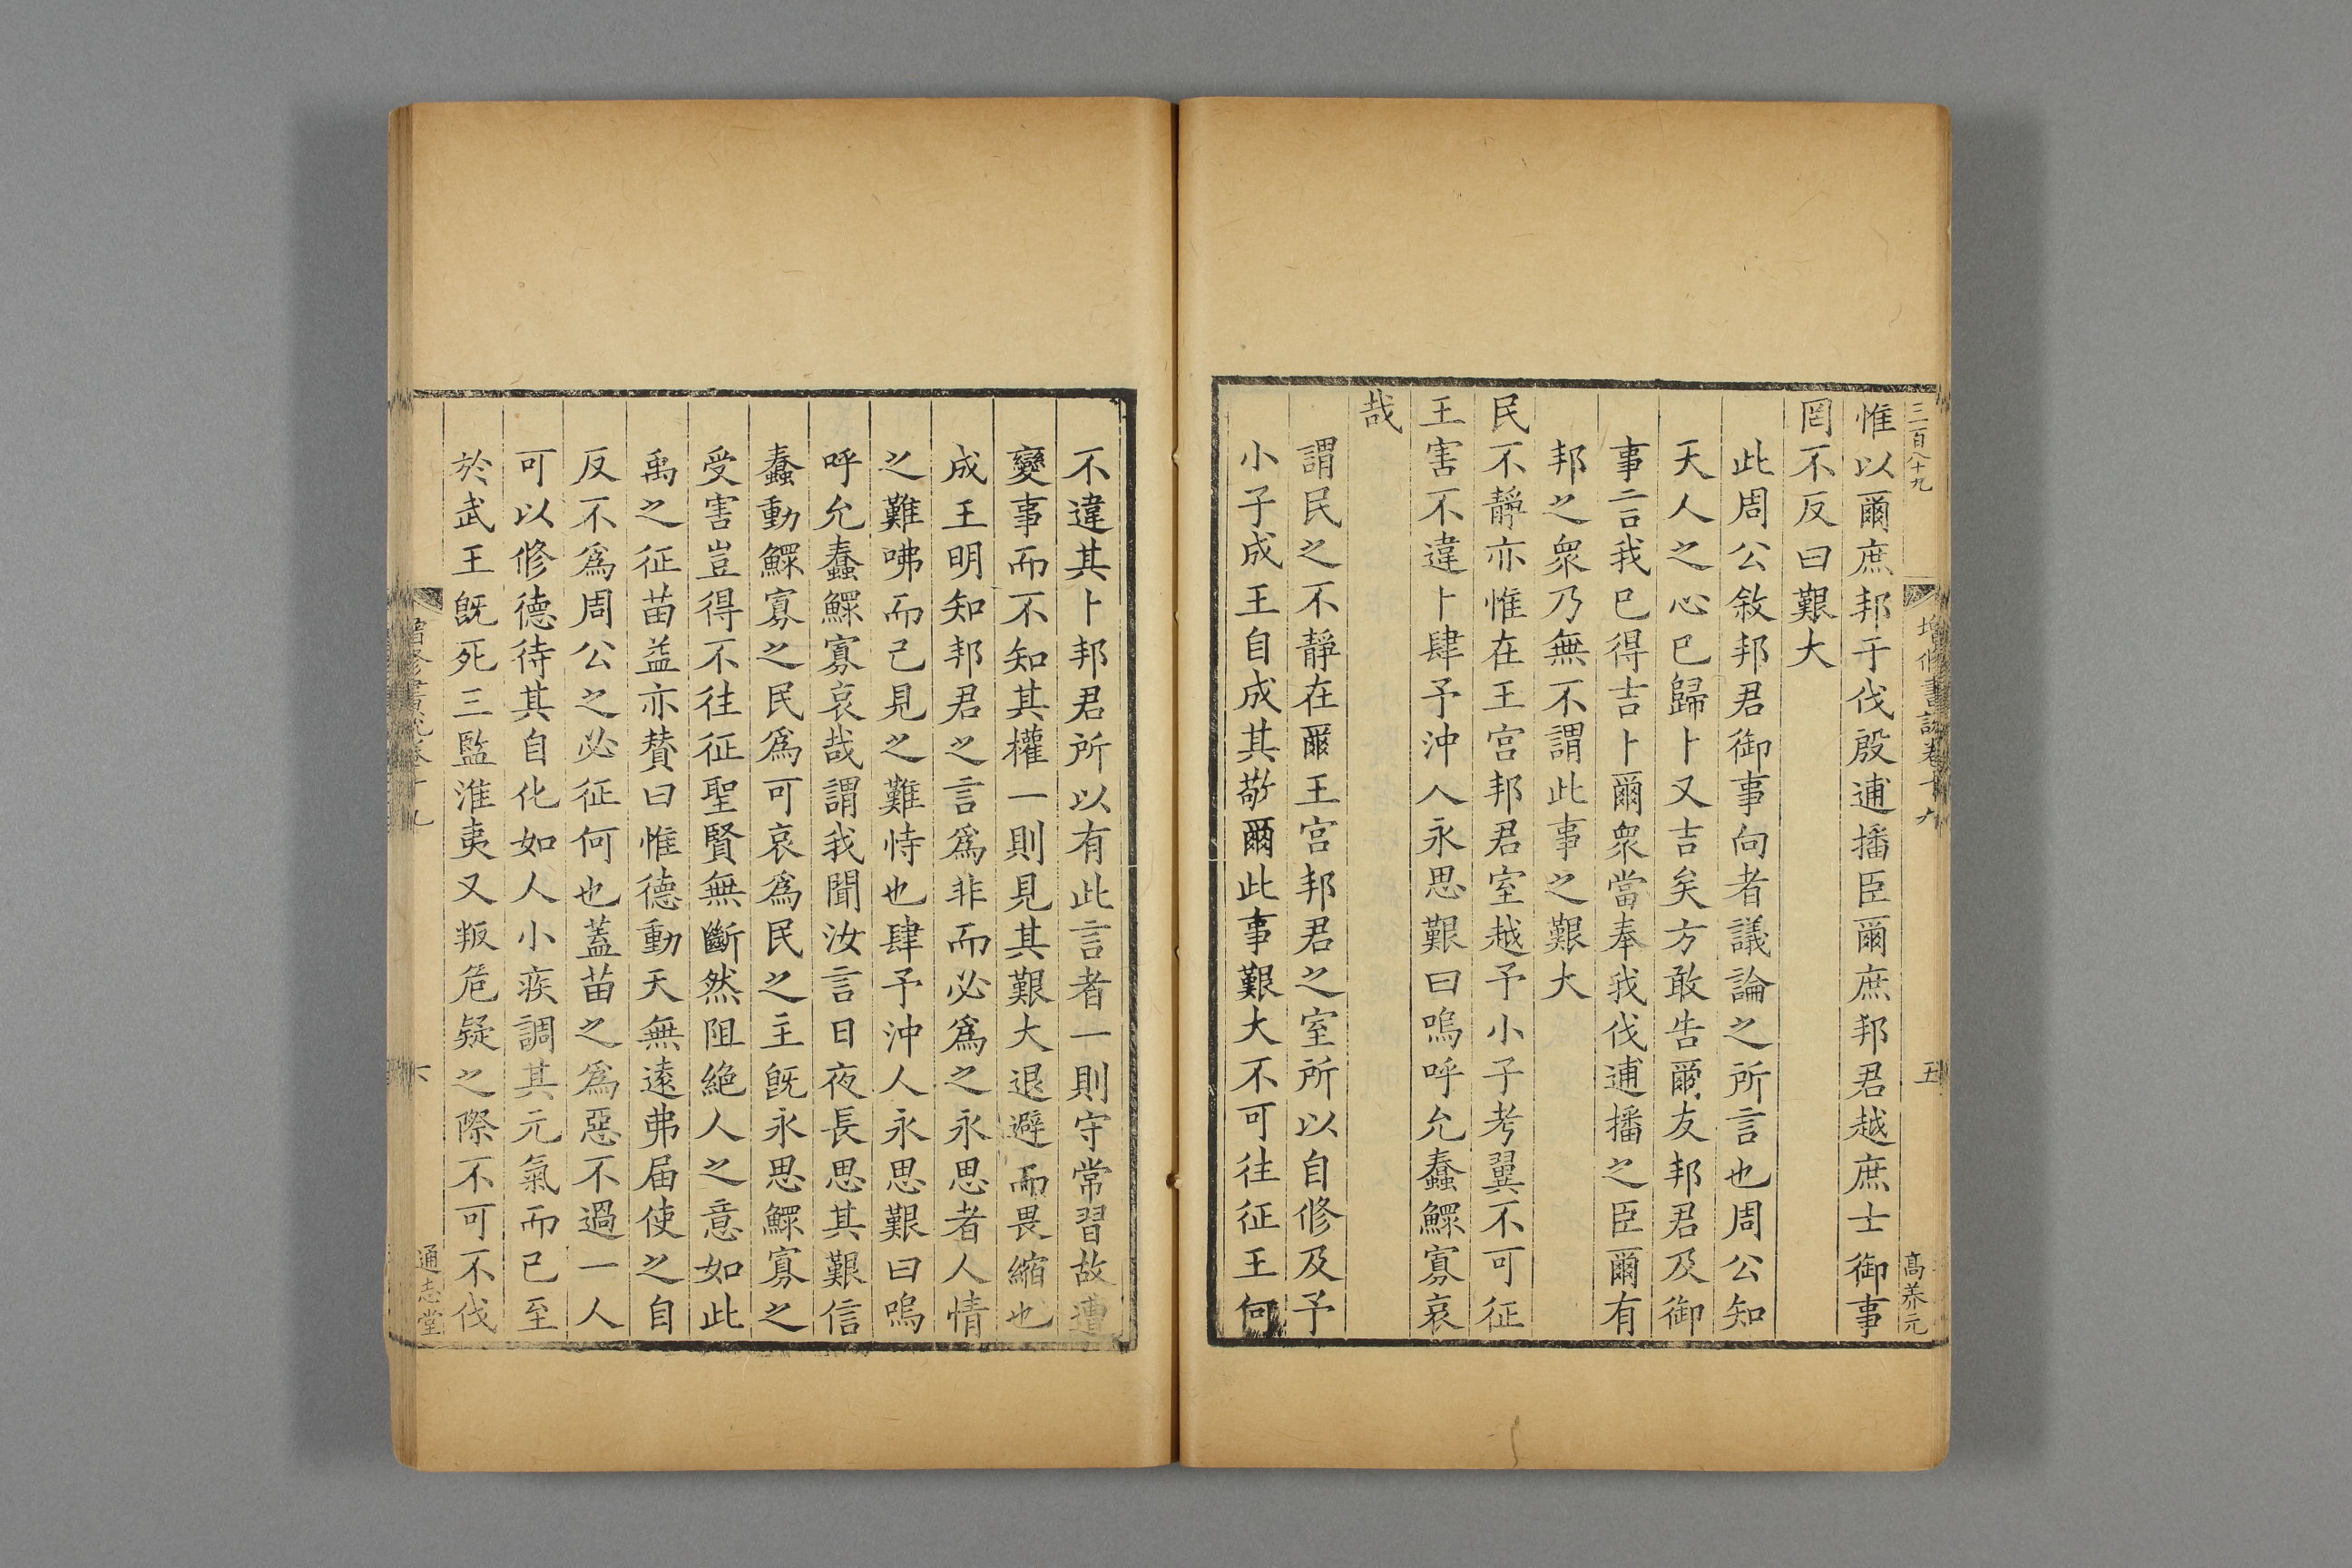 三百八十九
增修書說卷十九
五
高养元
惟以爾庶邦于伐殷逋播臣爾庶邦君越庶士御事
罔不反曰艱大
此周公敘邦君御事向者議論之所言也周公知
天人之心已歸卜又吉矣方敢告爾友邦君及御
事言我已得吉卜爾衆當奉我伐逋播之臣爾有
邦之衆乃無不謂此事之艱大
民不靜亦惟在王宫邦君室越予小子考翼不可征
王害不違卜肆予沖人永思艱曰嗚呼允蠢鰥寡哀
哉
謂民之不靜在爾王宫邦君之室所以自修及予
小子成王自成其敬爾此事艱大不可往征王何
不違其卜邦君所以有此言者一則守常習故遭
變事而不知其權一則見其艱大退避而畏縮也
成王明知邦君之言爲非而必爲之永思者人情
之難咈而己見之難恃也肆予沖人永思艱曰嗚
呼允蠢鰥寡哀哉謂我聞汝言日夜長思其艱信
蠢動鰥寡之民爲可哀爲民之主旣永思鰥寡之
受害豈得不往征聖賢無斷然阻絶人之意如此
禹之征苗益亦贊曰惟德動天無遠弗届使之自
反不爲周公之必征何也蓋苗之爲惡不過一人
可以修德待其自化如人小疾調其元氣而已至
於武王旣死三監淮夷又叛危疑之際不可不伐
增修書說卷十九
六
通志堂